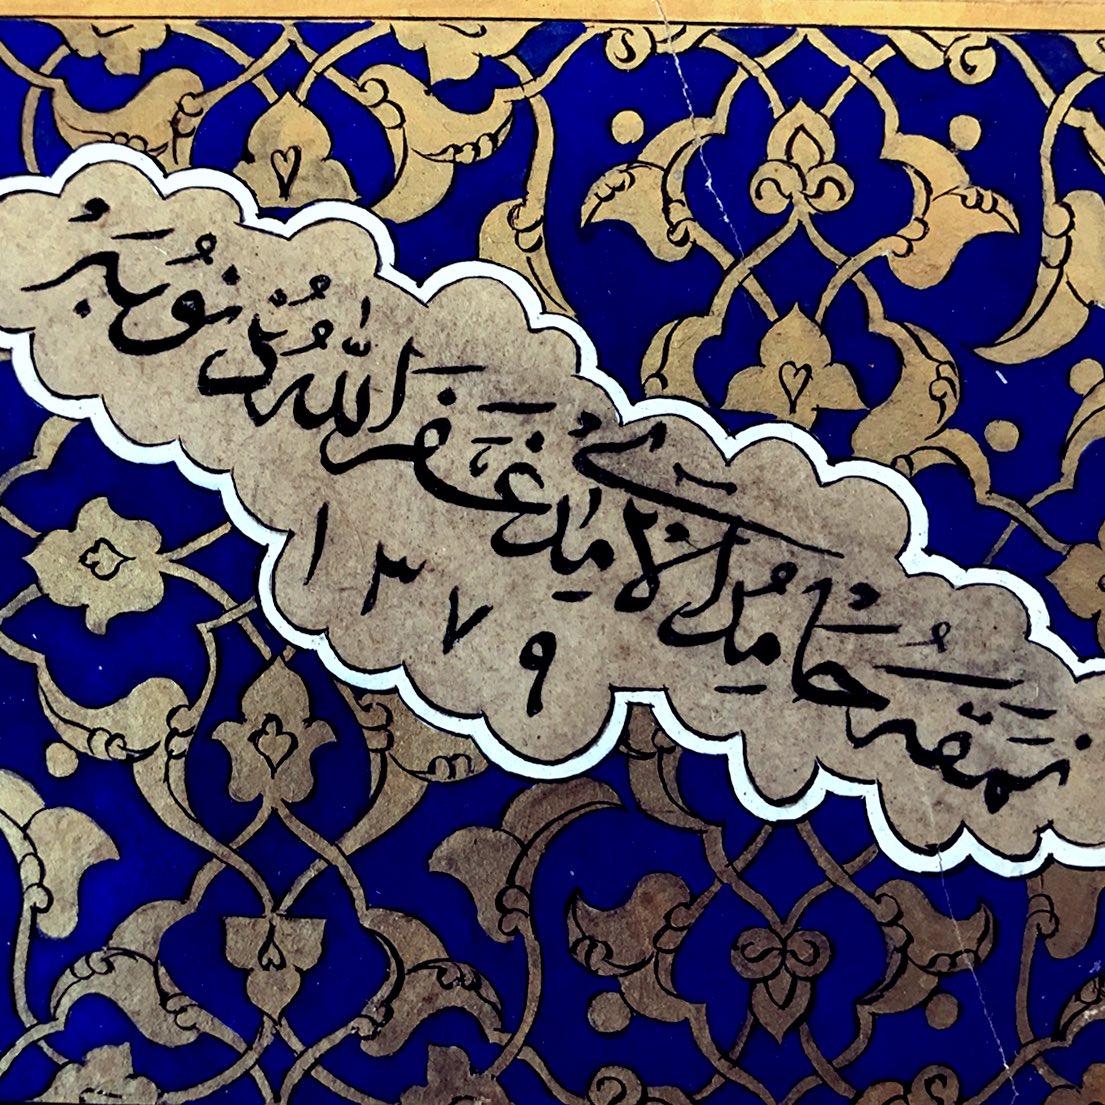 نمقه حامد الآمدي غفر الله ذنوبه
١٣٧٩